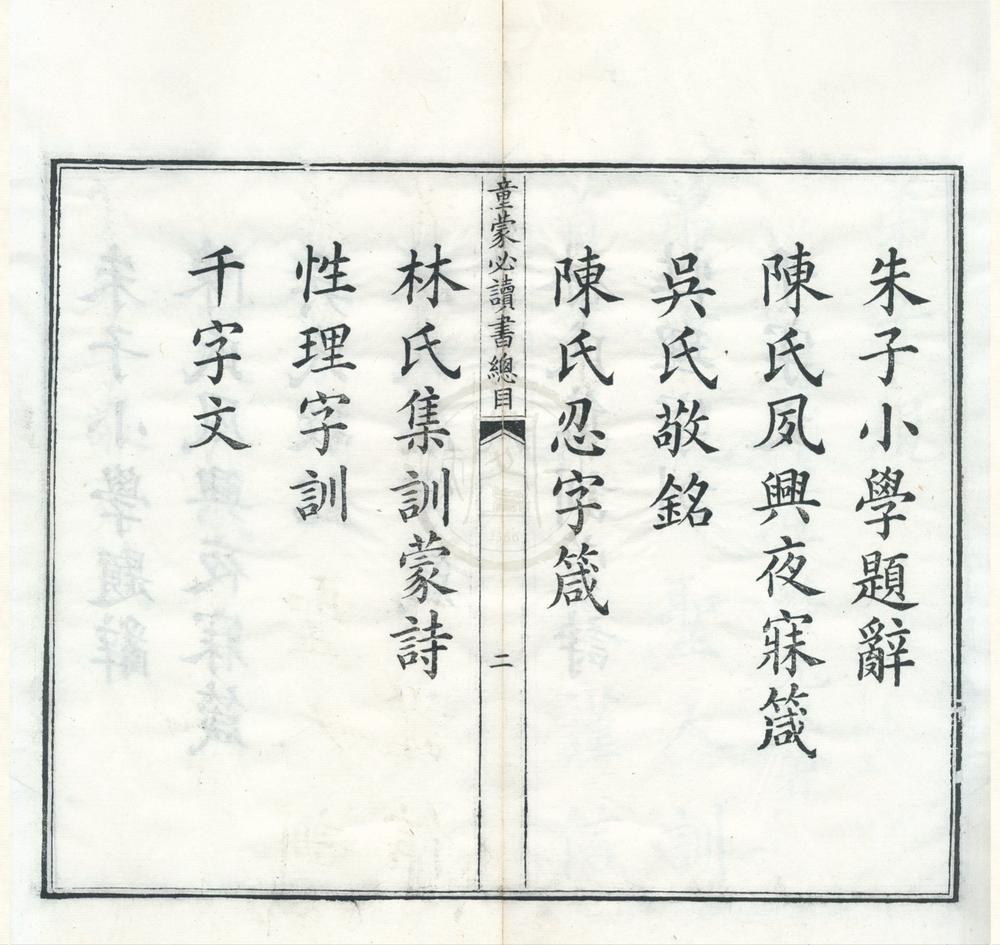 朱子小學題辭
陳氏夙興夜寐箴
吳氏敬銘
陳氏忍字箴
童蒙必讀書總目
二
林氏集訓蒙詩
性理字訓
千字文